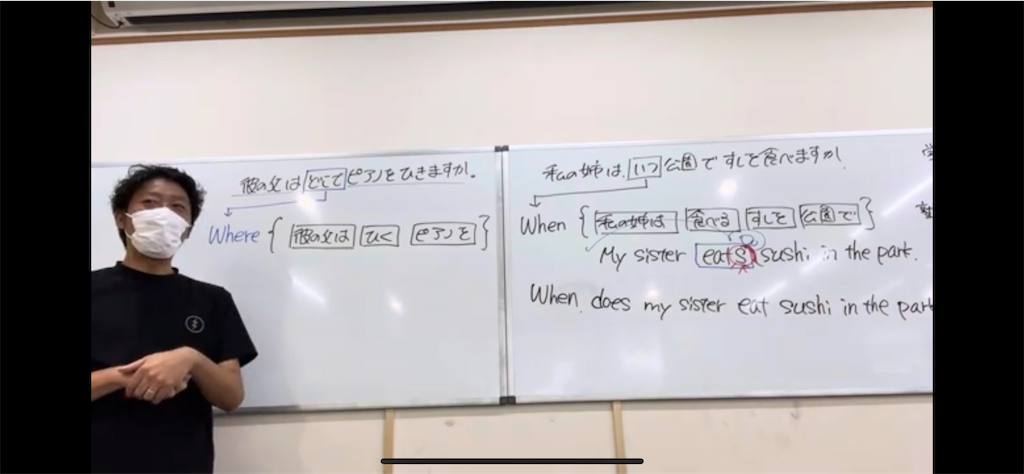 彼の父はどこでピアノをひきますか。
Where { 彼の父は ひく ピアノを }
私の姉は、いつ公園ですしを食べますか。
When { 私の姉は 食べる すしを 公園で }
My sister eats sushi in the park.
When does my sister eat sushi in the park